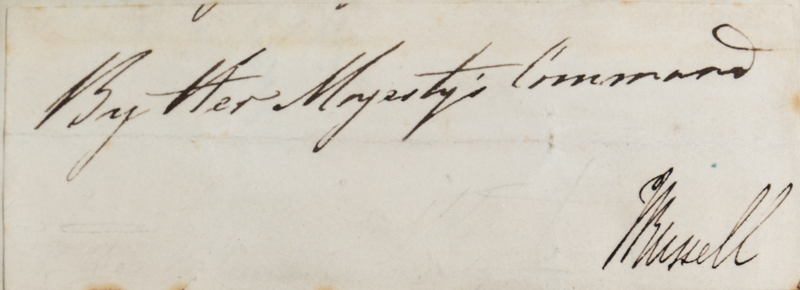 By Her Majesty's Command
J Russell